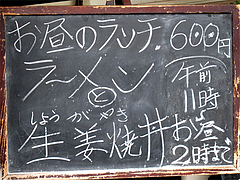 お昼のランチ. 600円
ラーメン
と
しょうがやき
生姜焼丼
午前
11時
〜
お昼
2時まで